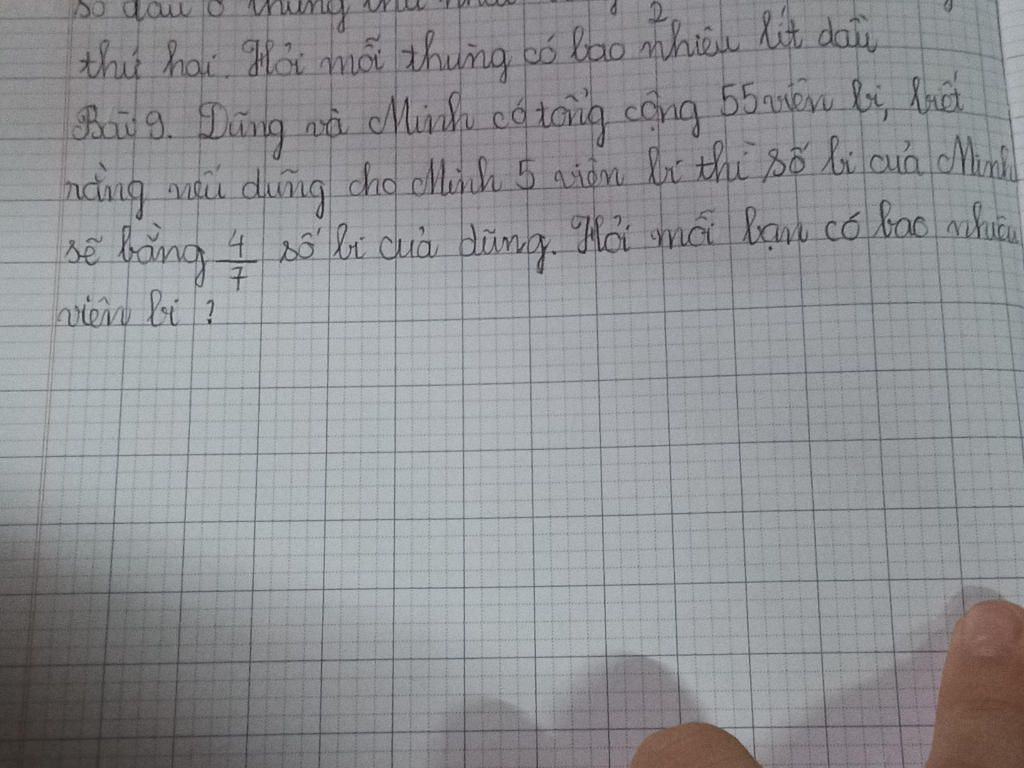 số dầu ở thùng thứ
thứ hai. Hỏi mỗi thùng có bao nhiêu lít dầu
2
Bài 9. Dũng và Minh có tổng cộng 55 viên bi, biết
rằng nếu dũng cho Minh 5 viên bi thì số bi của Minh
sẽ bằng 4/7 số bi của dũng. Hỏi mỗi bạn có bao nhiêu
viên bi ?